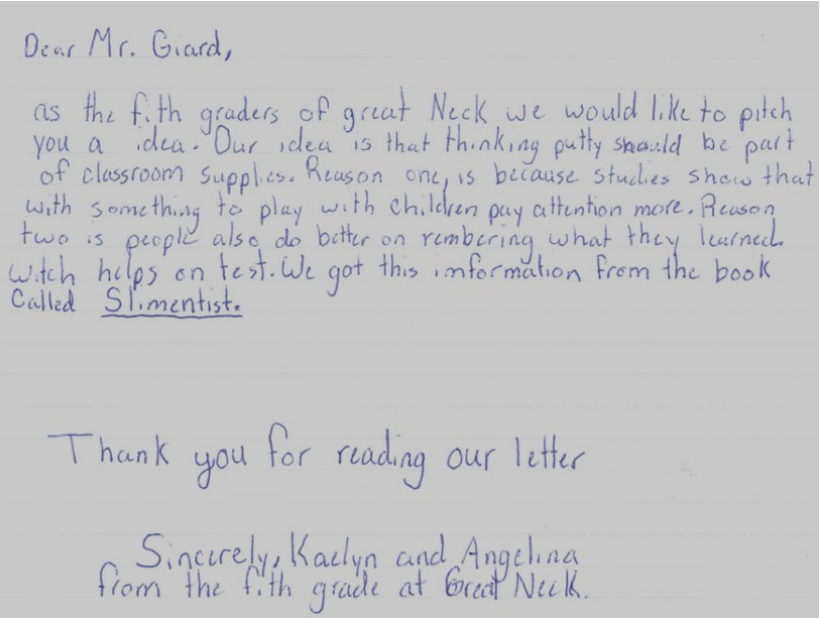 Dear Mr. Giard,
as the fith graders of great Neck we would like to pitch
you a idea. Our idea is that thinking putty should be part
of classroom supplies. Reason one, is because studies show that
with something to play with children pay attention more. Reason
two is people also do better on rembering what they learned
witch helps on test. We got this information from the book
Called Slimentist.
Thank you for reading our letter
Sincerely, Kaelyn and Angelina
from the fith grade at Great Neck.